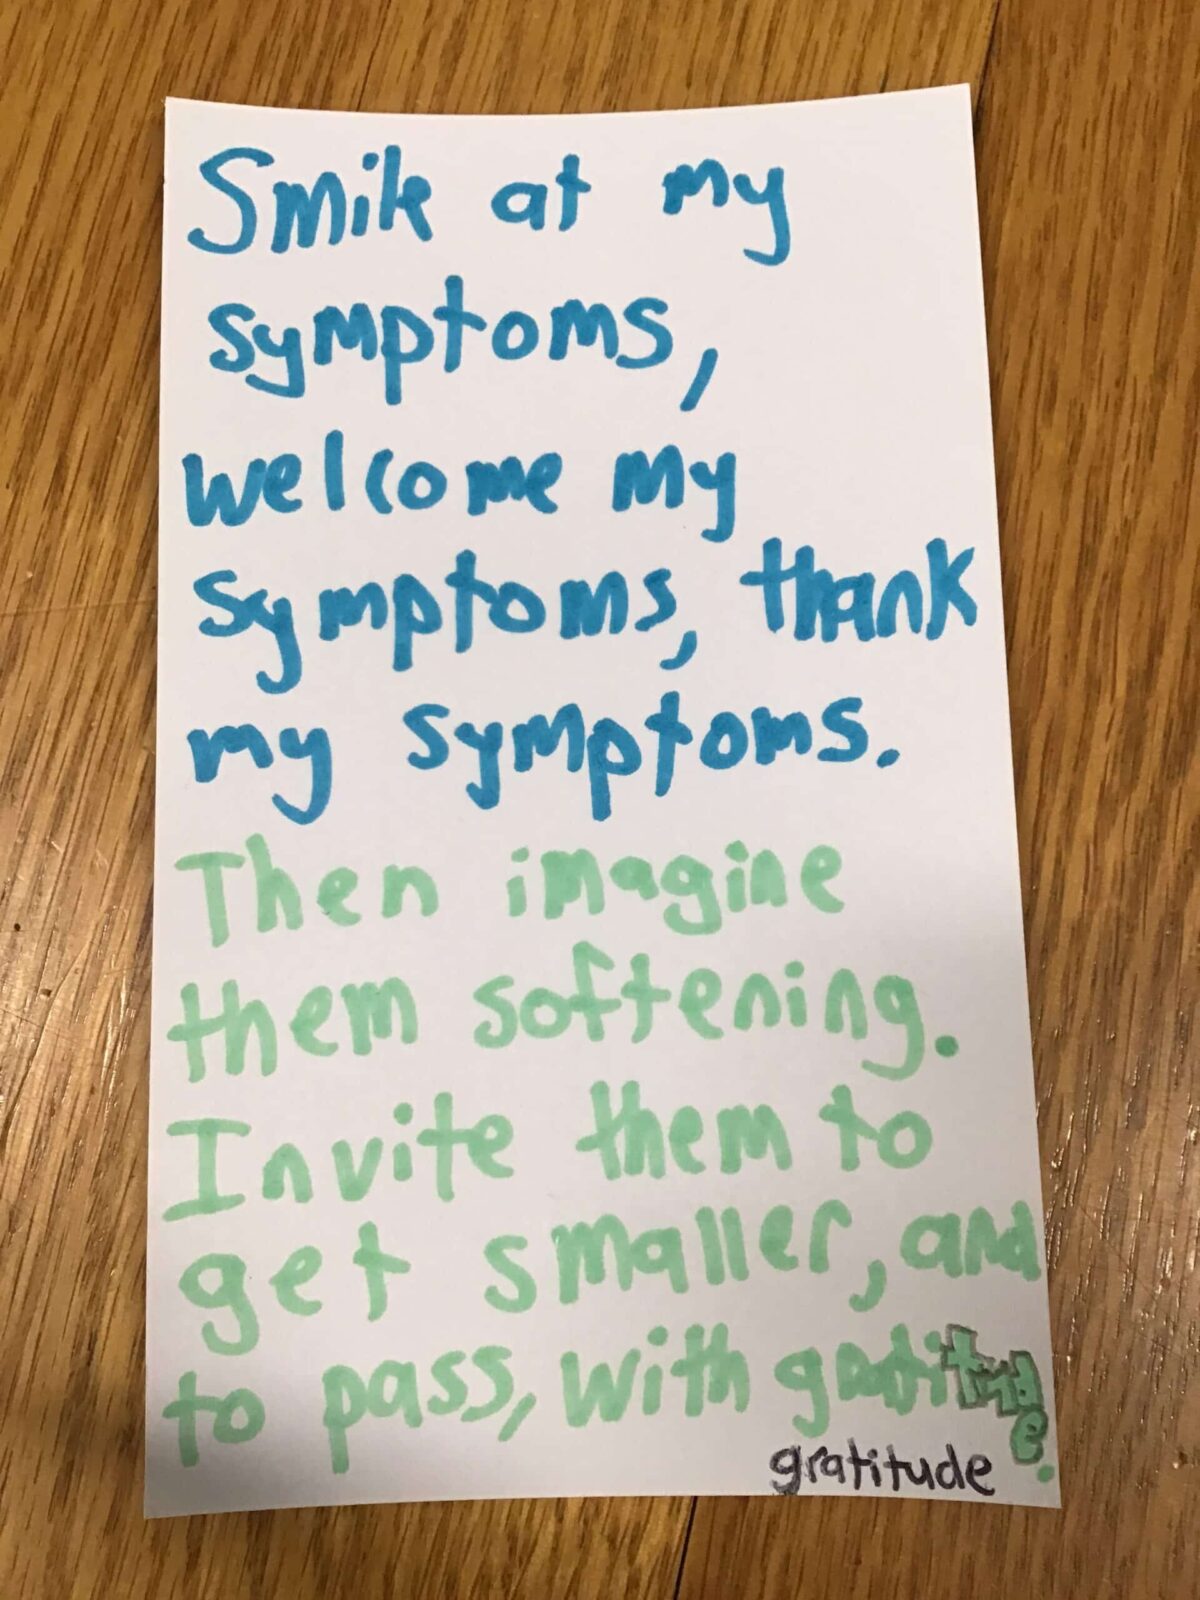 Smile at my
symptoms,
welcome my
symptoms, thank
my symptoms.
Then imagine
them softening.
Invite them to
get smaller, and
to pass, with gratitude.
gratitude